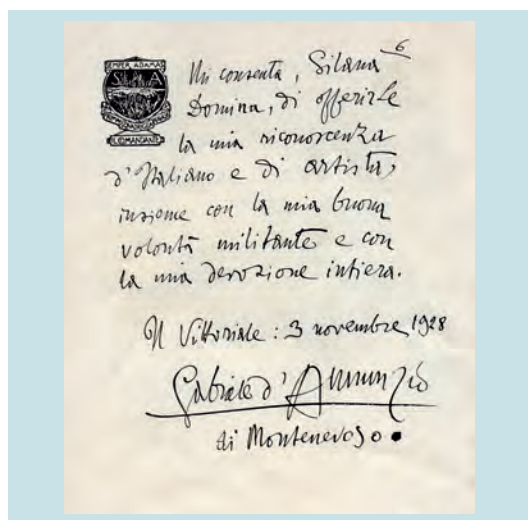 6
SEMPER ADAMAS
IL COMANDANTE
Mi consenta, Silana
Domina, di offerirLe
la mia riconoscenza
d'Italiano e di artista,
insieme con la mia buona
volontà militante e con
la mia devozione intiera.
Il Vittoriale: 3 novembre 1928
Gabriele d'Annunzio
di Montenevoso